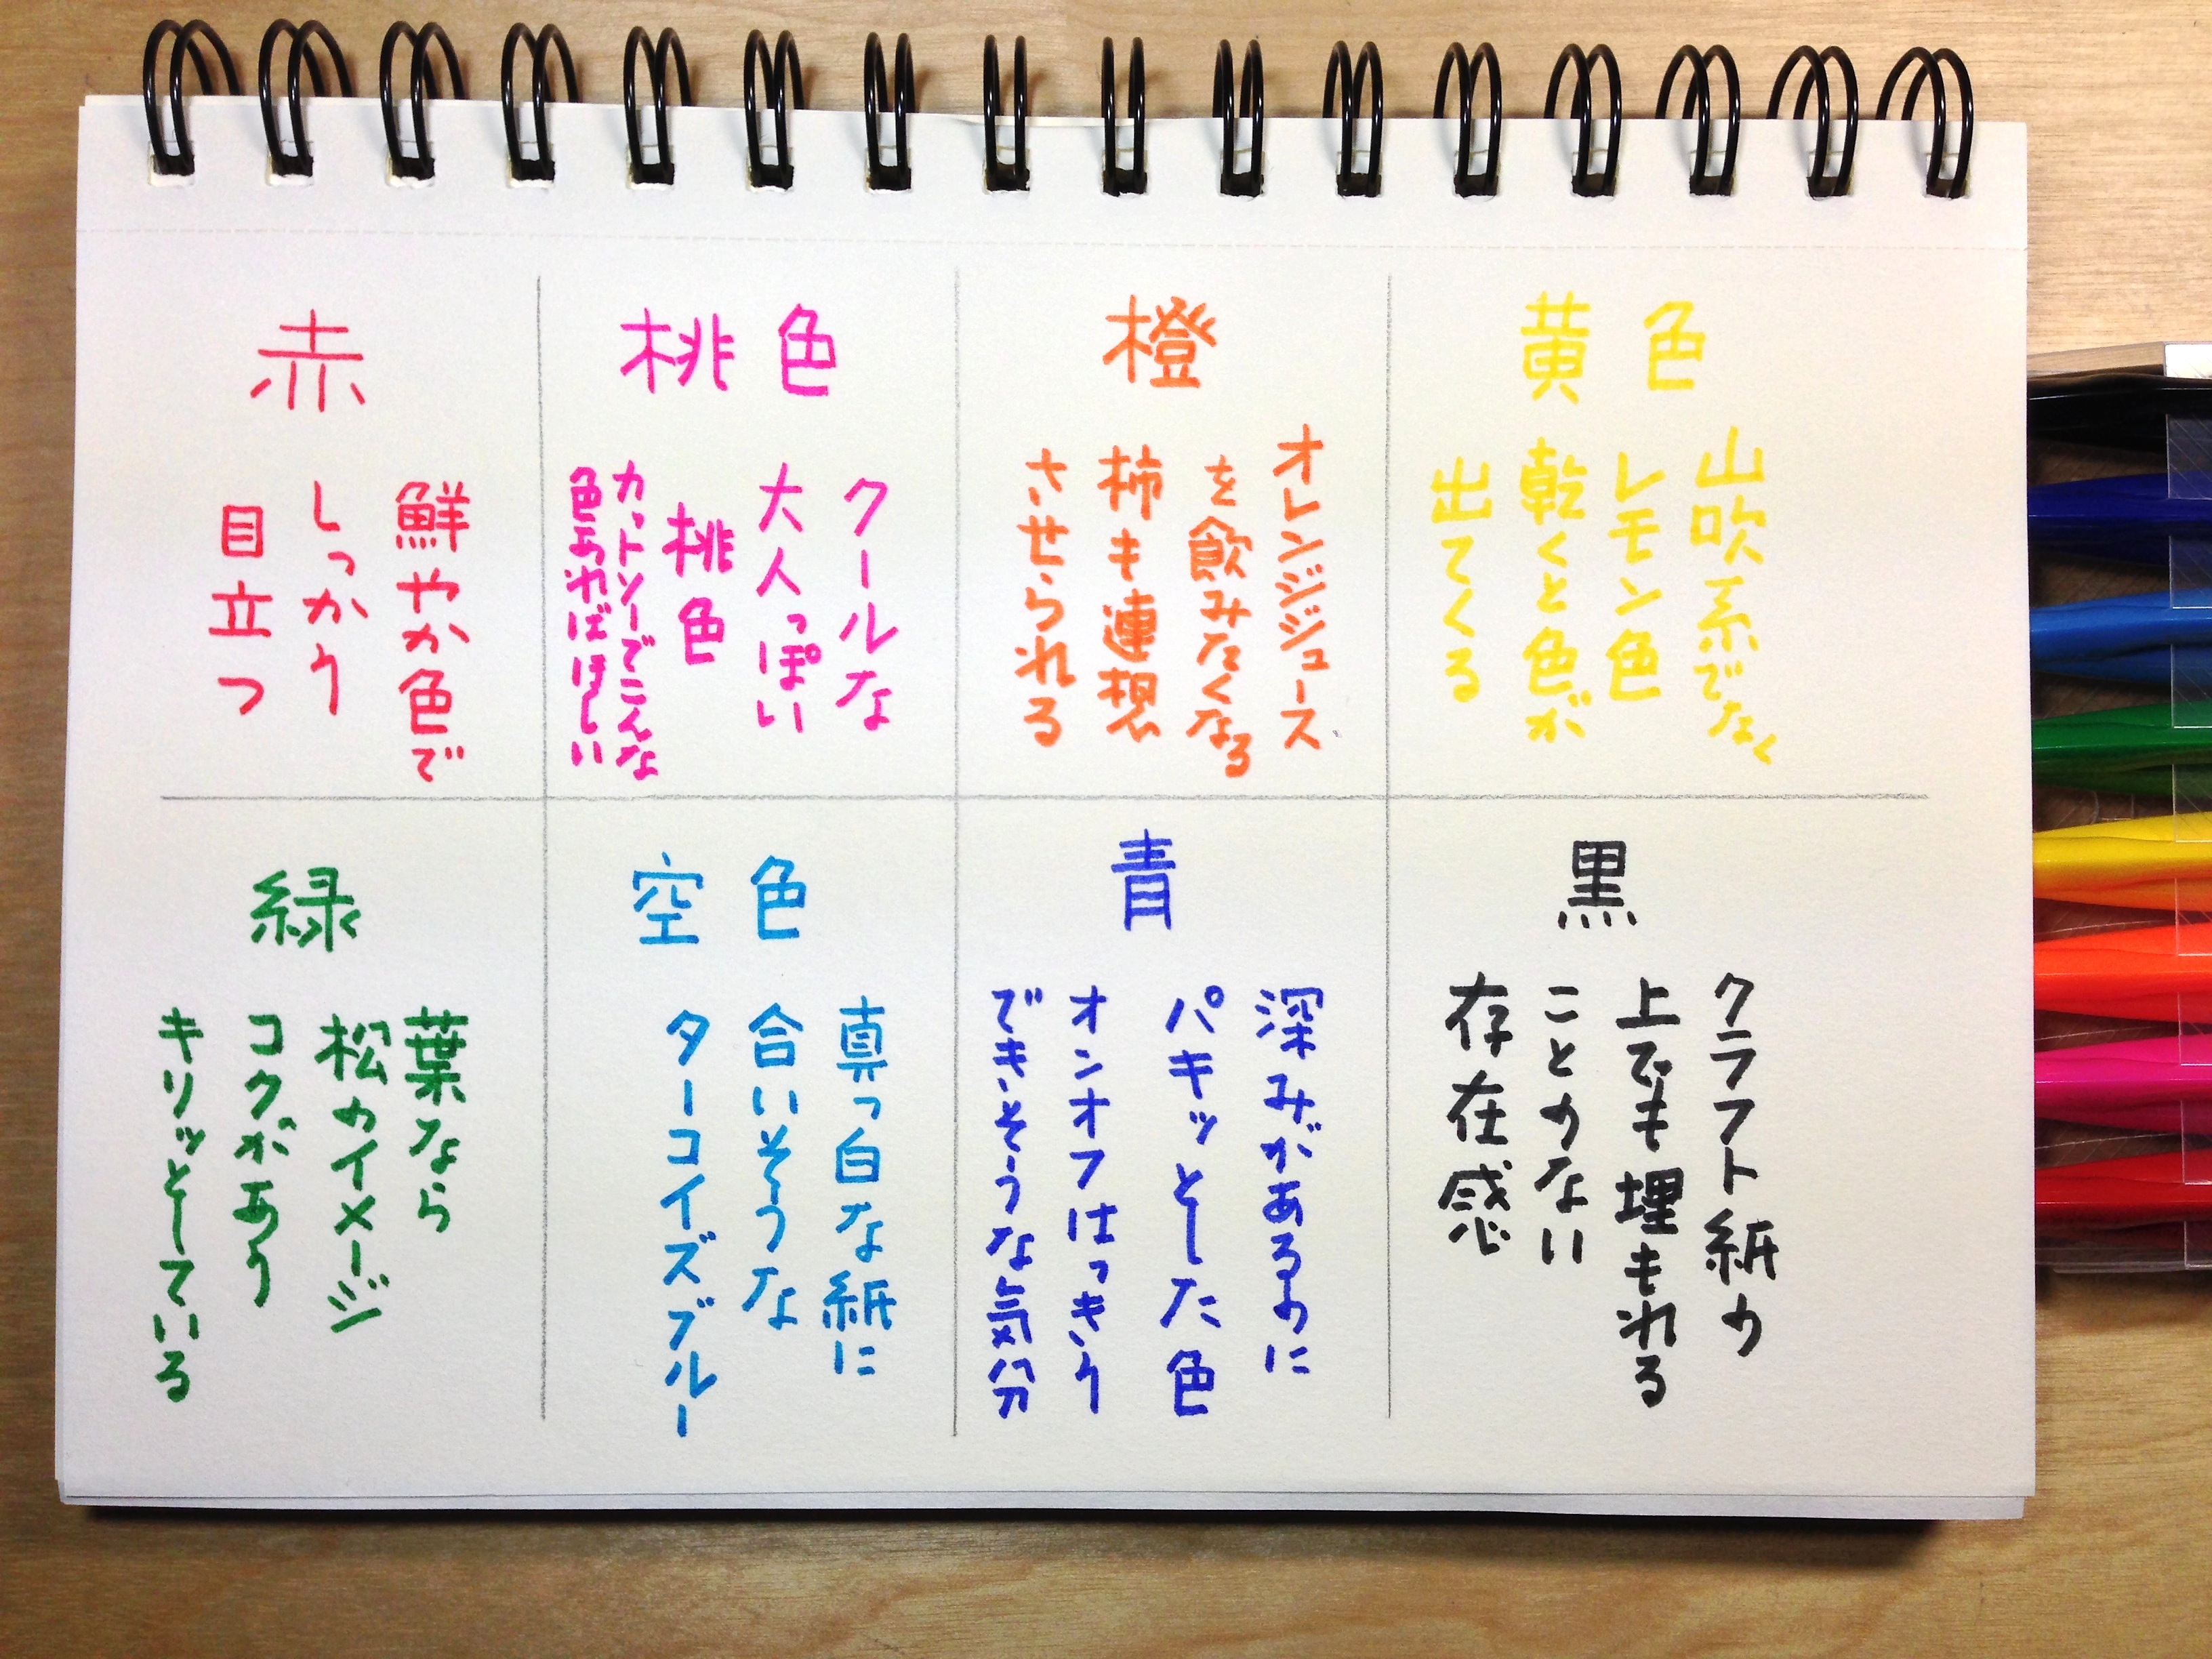 赤
鮮やか色で
しっかり
目立つ
桃色
クールな
大人っぽい
桃色
カットソーでこんな
色あればほしい
橙
オレンジジュース
を飲みたくなる
柿も連想
させられる
黄色
山吹系でなく
レモン色
乾くと色が
出てくる
緑
葉なら
松のイメージ
コクがあり
キリッとしている
空色
真っ白な紙に
合いそうな
ターコイズブルー
青
深みがあるのに
パキッとした色
オンオフはっきり
できそうな気分
黒
クラフト紙の
上でも埋もれる
ことのない
存在感